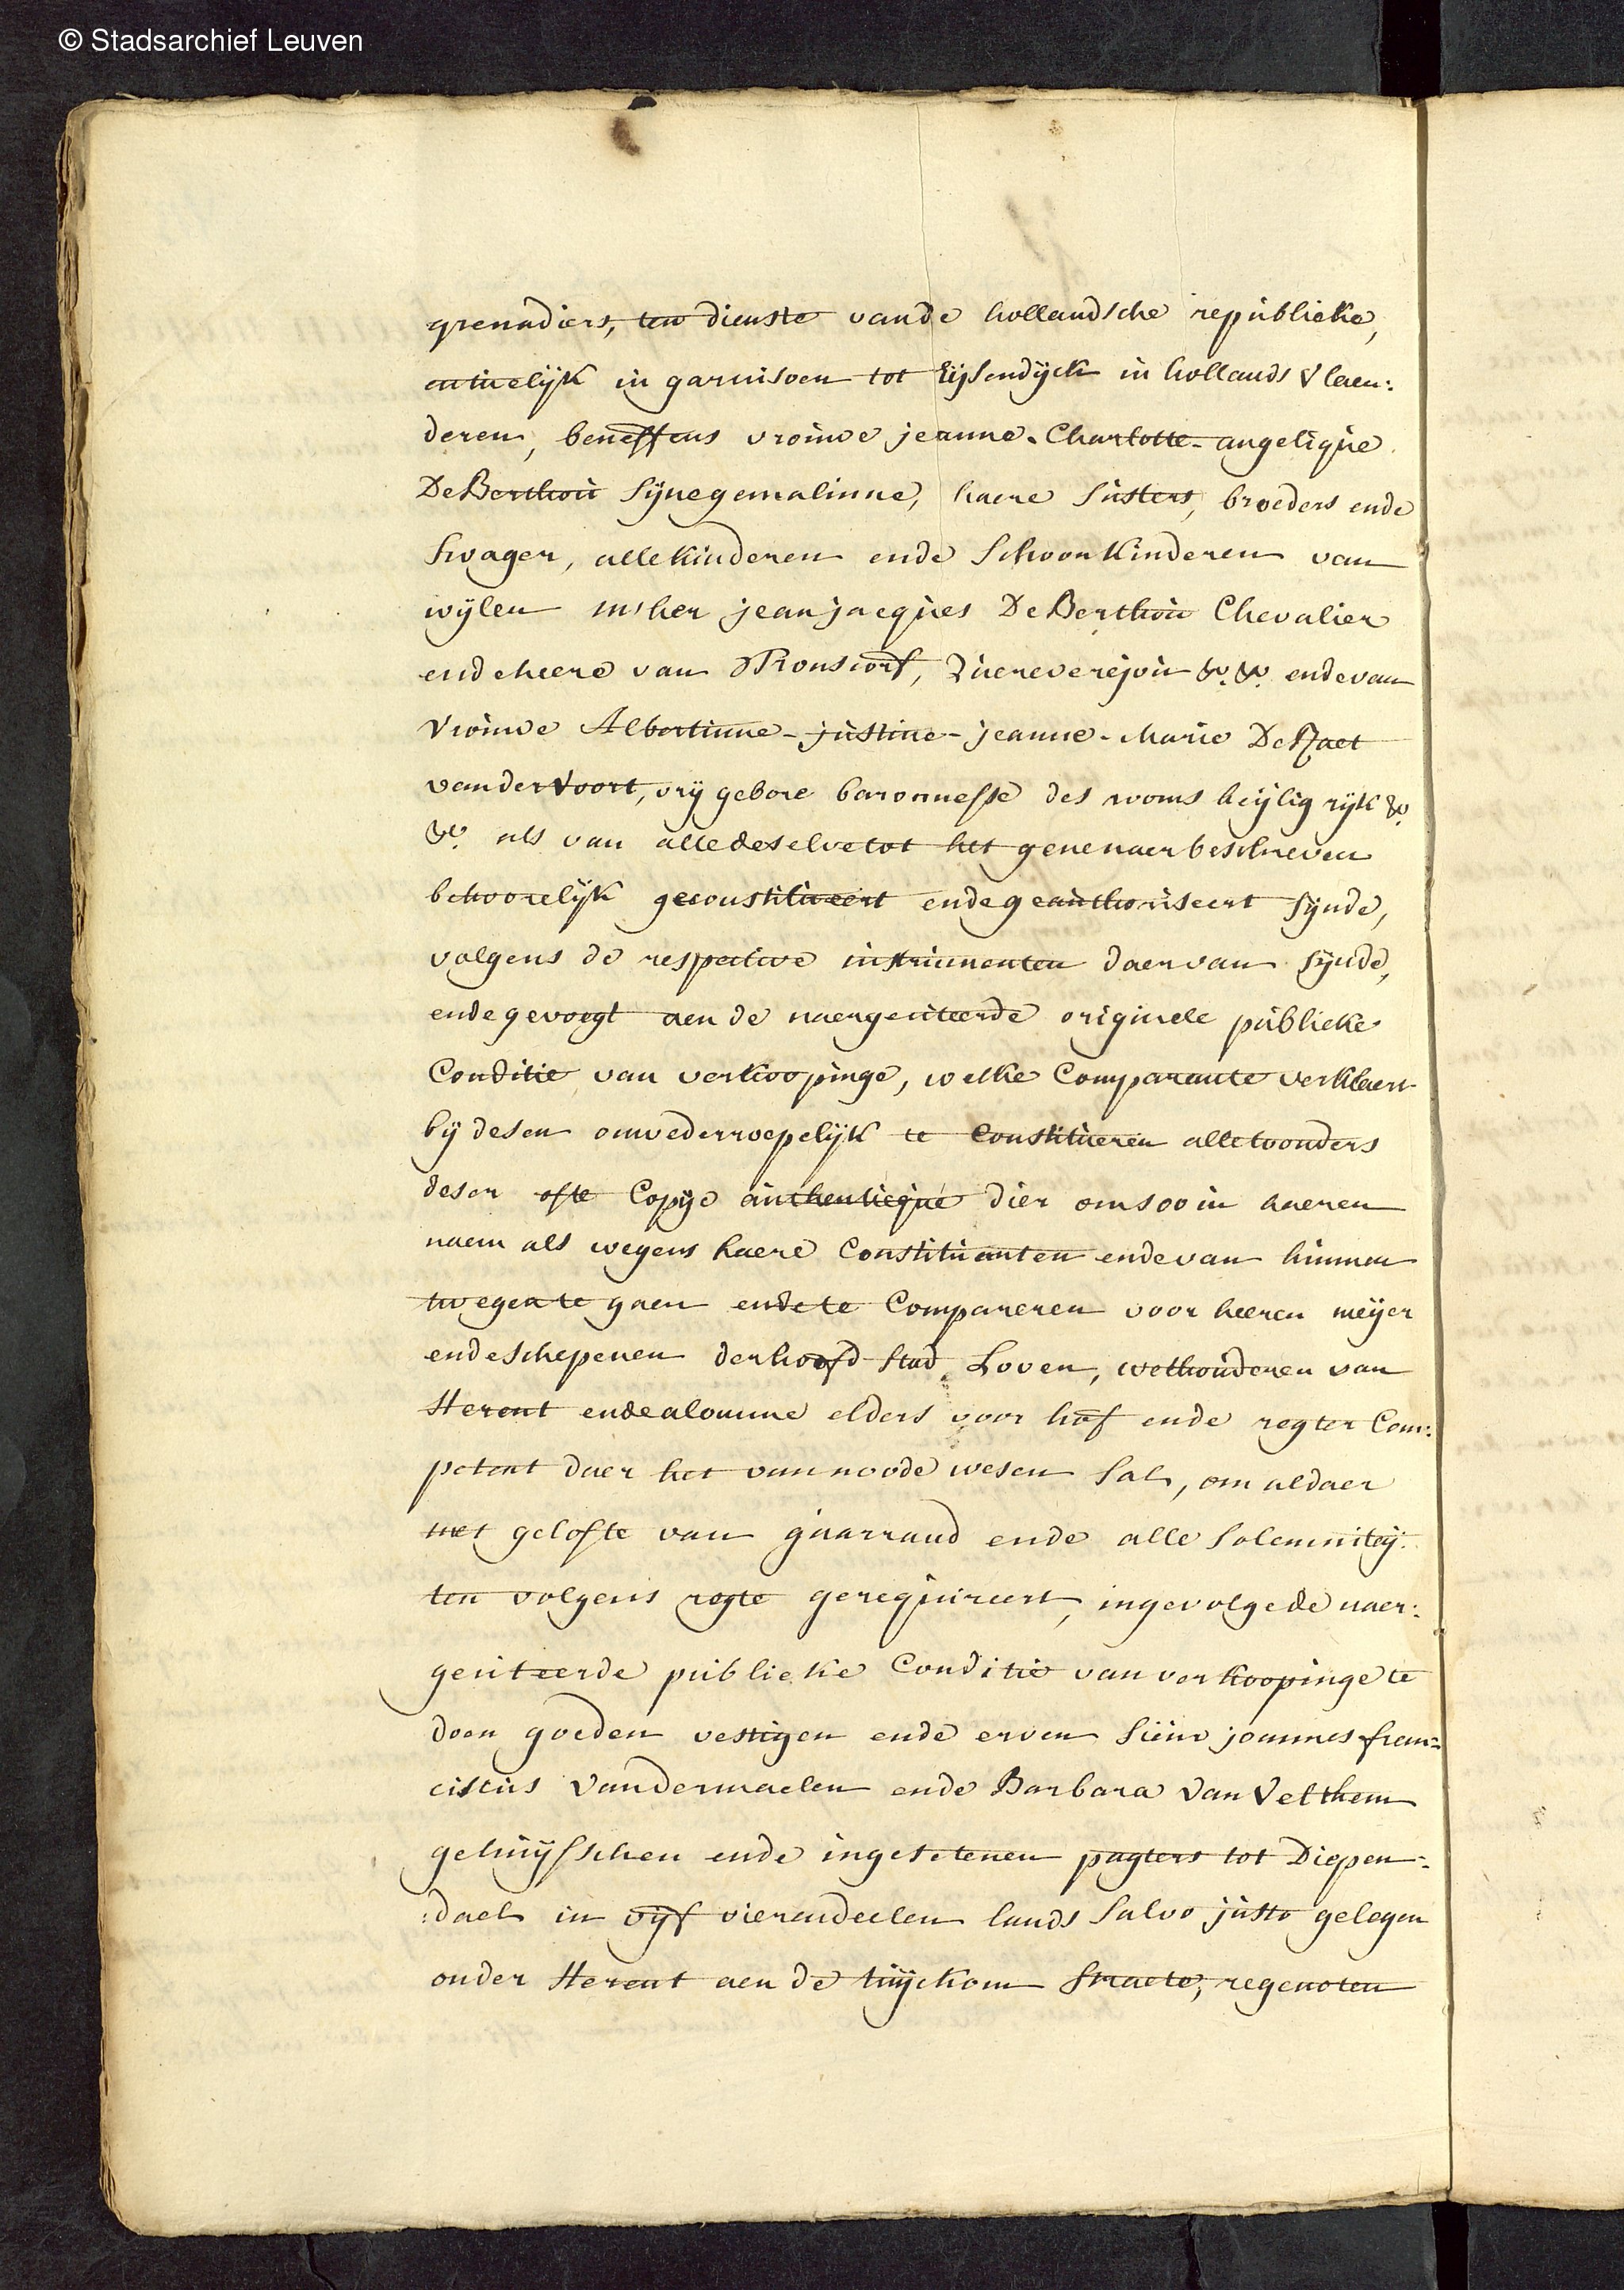 © Stadsarchief Leuven
grenadiers, ten dienste vande hollandsche republieke,
actuelijk in garnisoen tot Eijsendijck in hollands vlaen:
deren, beneffens vrouwe jeanne-Charlotte-angelique
De Berthou sijne gemalinne, haere susters, broeders ende
swager, alle kinderen ende schoonkinderen van
wijlen mher jean jacques De Berthou Chevalier
ende heere van &c. &c. ende van
vrouwe Albertinne-justine-jeanne-Marie De Raet
vander Voort, vrij gebore baronnesse des rooms heijlig rijk &c.
&c. als van alle deselve tot het gene naerbeschreven
behoorelijk geconstitueert ende geauthoriseert sijnde,
volgens de respective instrumenten daervan sijnde,
ende gevoegt aen de naergeciteerde originele publieke
Conditie van verkoopinge, welke Comparante verklaert
bij desen onwederroepelijk te Constitueren alle toonders
deser ofte Copije authenticque dier om soo in haeren
naem als wegens haere Constituanten ende van hunnen
twegen te gaen ende te Compareren voor heeren meijer
ende schepenen der hoofd-stad Loven, wethouderen van
Herent ende alomme elders voor hof ende regter Com:
petent daer het van noode wesen sal, om aldaer
met gelofte van guarrand ende alle solemniteij:
ten volgens regte gerequireert, ingevolge de naer:
geciteerde publieke Conditie van verkoopinge te
doen goeden vestigen ende erven sieur joannes fran=
ciscus Vandermaelen ende Barbara Van Velthem
gehuijsschen ende ingesetenen pagters tot Diepen=
:dael in vijf vierendeelen lands salvo justo gelegen
onder Herent aen de tuijckom straete, regenoten